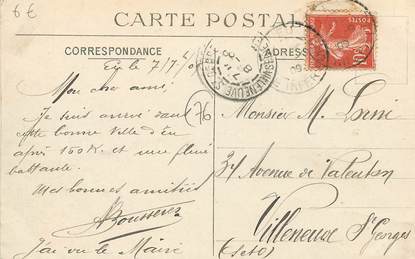 6€
CARTE POSTALE
CORRESPONDANCE
ADRESSE
POSTES
10
Eu le 7/7/08
Mon cher ami,
Je suis arrivé dans
cette bonne Ville d'Eu
après 160 K. et une pluie
battante.
Mes bonnes amitiés
J'ai vu le Maire
76
Monsieur M.
34 Avenue de Valenton
Villeneuve St Georges
(S et O)